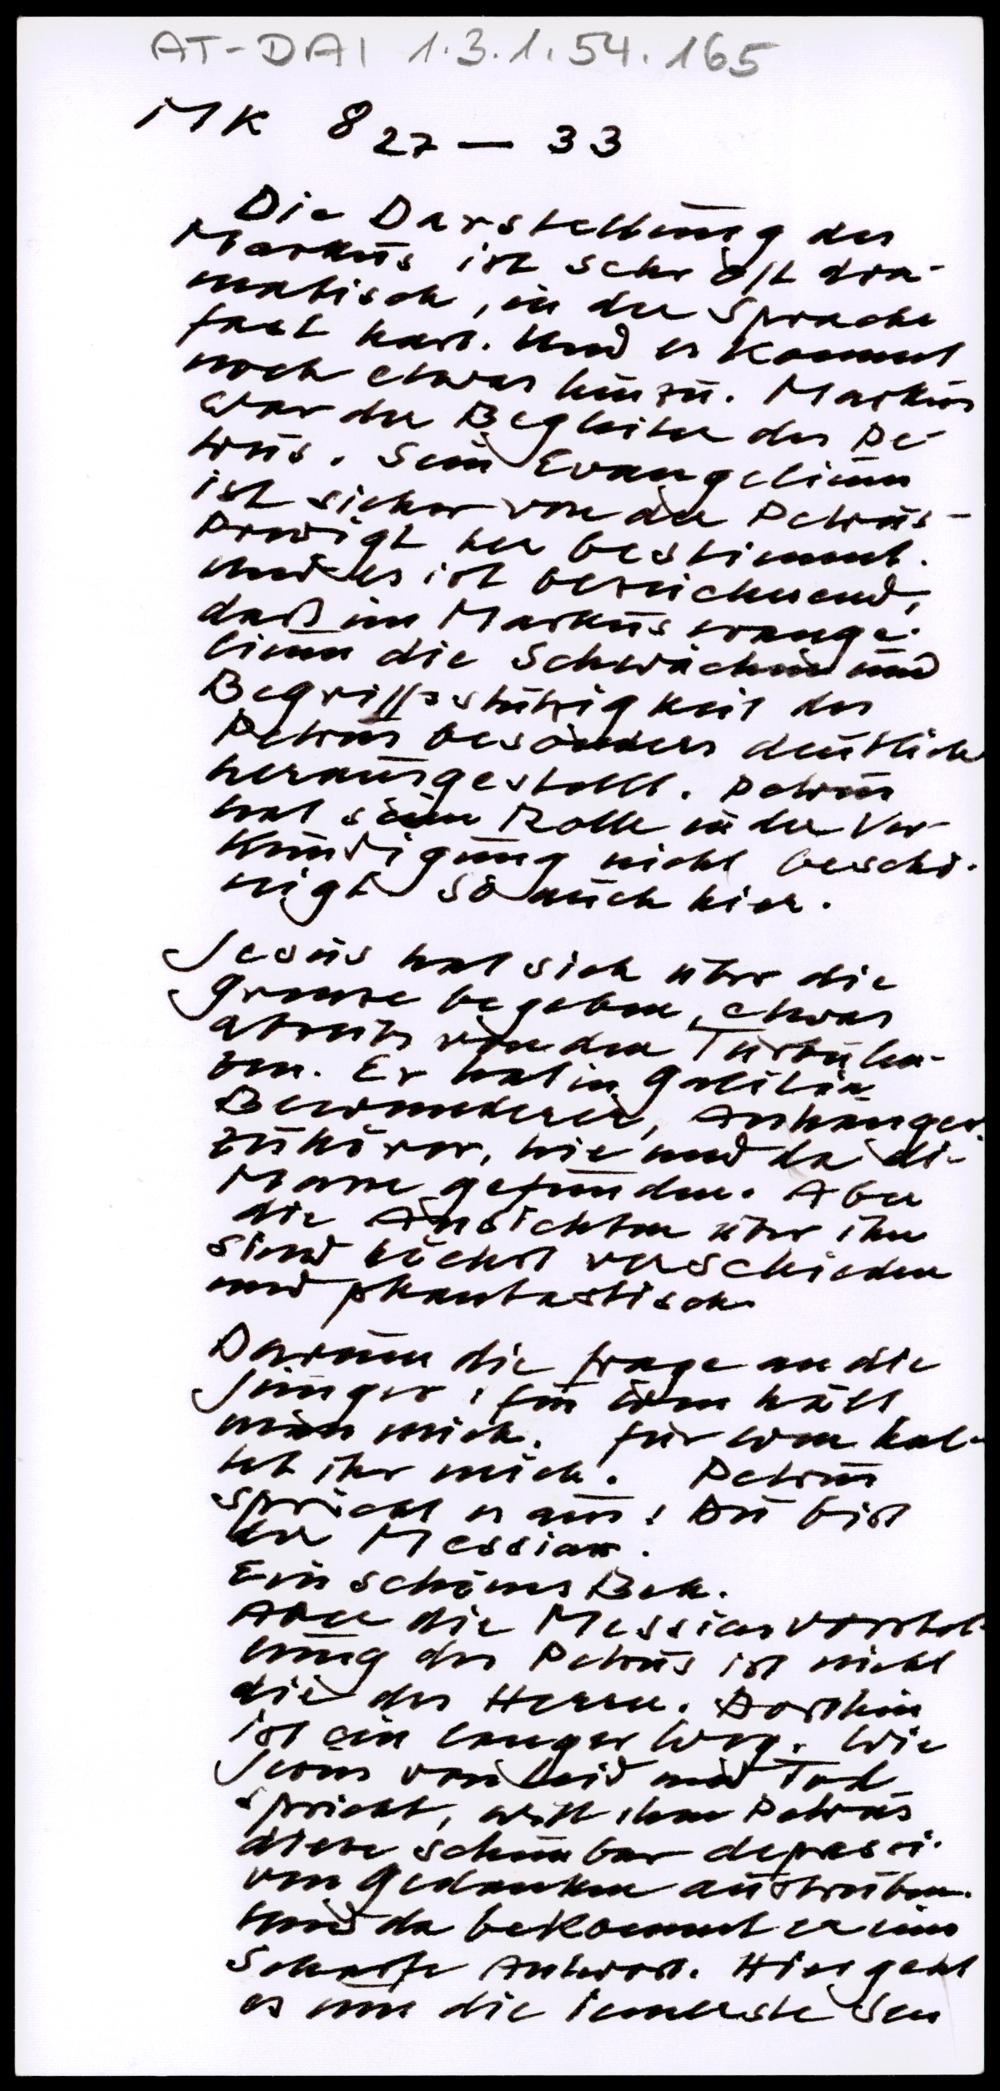 AT-DAI 1.3.1.54.165
MK 8 27 — 33
Die Darstellung des
Markus ist sehr oft dra-
matisch, in der Sprache
fast hart. Und es kommt
noch etwas hinzu. Markus
war der Begleiter des Pe-
trus. Sein Evangelium
ist sicher von der Petrus-
predigt her bestimmt.
Und es ist bezeichnend,
daß im Markusevange-
lium die Schwächen und
Begriffsstützigkeit des
Petrus besonders deutlich
herausgestellt. Petrus
hat seine Rolle in der Ver-
kündigung nicht beschö-
nigt so auch hier.
Jesus hat sich über die
Grenze begeben, etwas
abseits von den Turbulen-
zen. Er hat in Galiläa
Bewunderer, Anhänger,
Zuhörer, hie und da die
Masse gefunden. Aber
die Ansichten über ihn
sind höchst verschieden
und phantastisch
Darum die Frage an die
Jünger: für wen hält
man mich. für wen hal-
tet ihr mich. Petrus
spricht es aus: Du bist
der Messias.
Ein schönes Bek.
Aber die Messiasvorstel-
lung des Petrus ist nicht
die des Herrn. Dorthin
ist ein langer Weg. Wie
Jesus von Leid und Tod
spricht, will ihm Petrus
diese scheinbar depressi-
ven Gedanken austreiben.
Und da bekommt er eine
scharfe Antwort. Hier geht
es um die innerste Sen